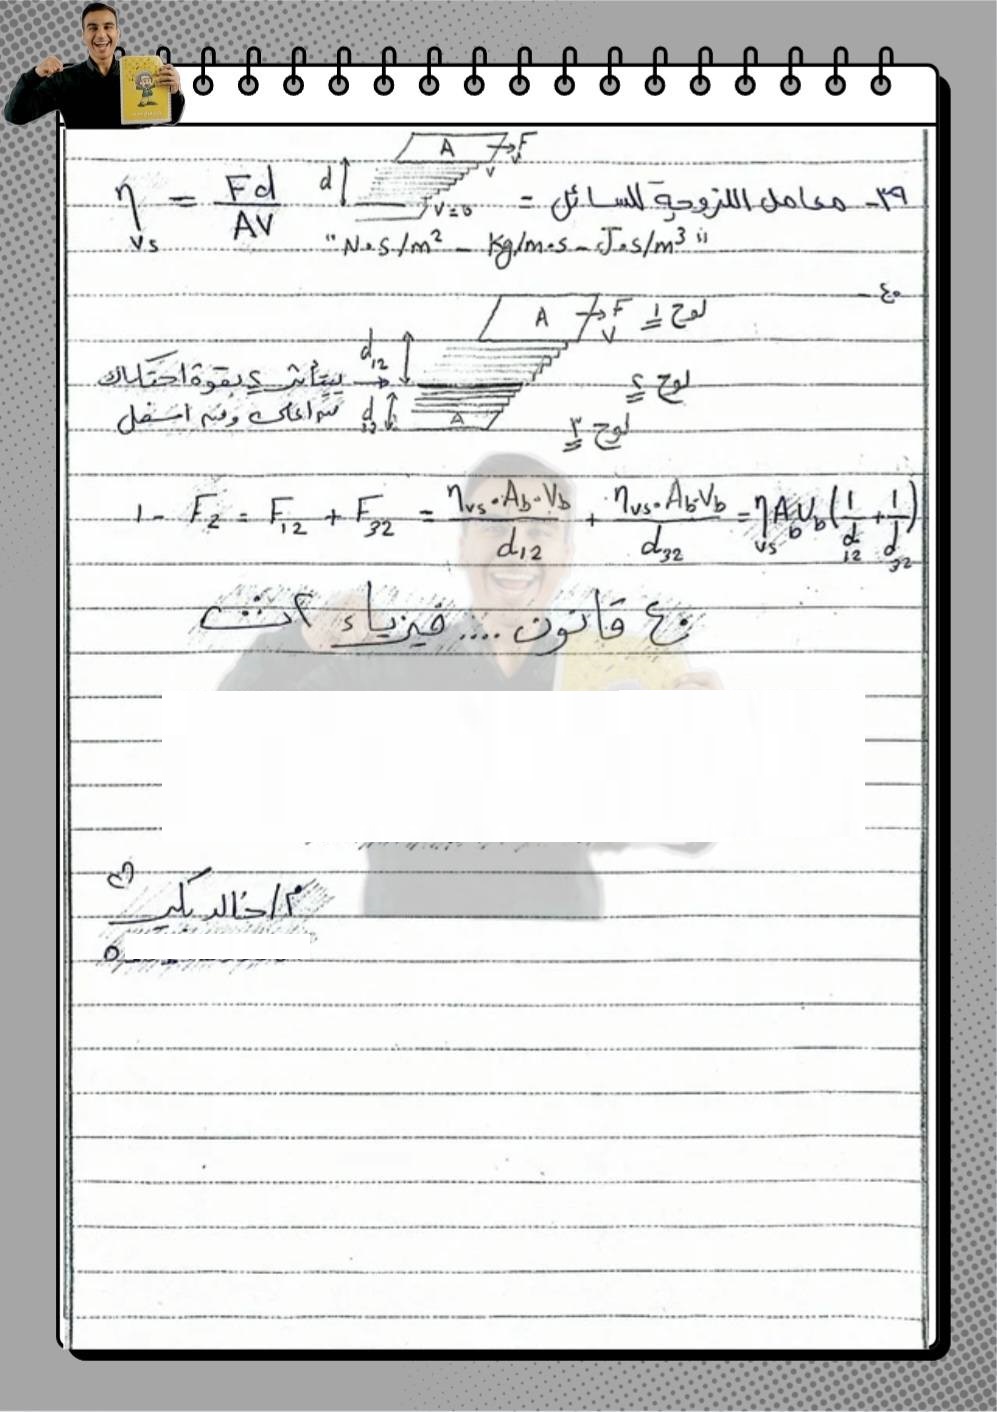 ٣٩- معامل اللزوجة للسائل = η_vs = Fd / AV
d A F V V=0
"N.s/m² - Kg/m.s - J.s/m³"
٤٠-
A F V لوح ١
d12 لوح ٢
يتأثر ٢ بقوة احتكاك
من أعلى ومن أسفل
d32 A لوح ٣
1- F2 = F12 + F32 = η_vs.A_b.V_b / d12 + η_vs.A_b.V_b / d32 = η_vs A_b V_b (1/d12 + 1/d32)
٤٠ قانون .... فيزياء ٢ث
م/خالد بكير